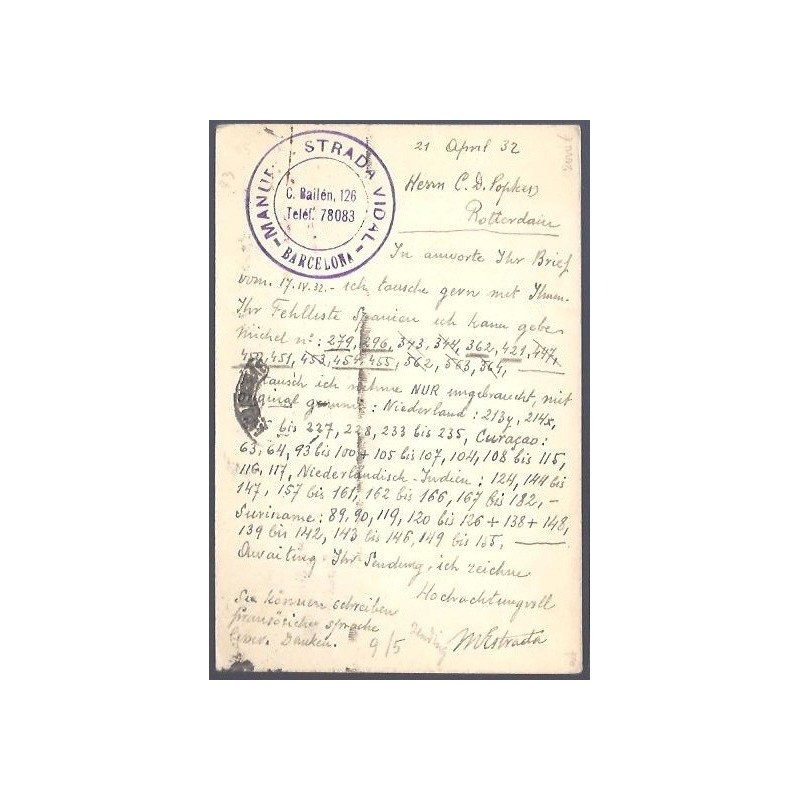 MANUE STRADA VIDAL
C. Bailén, 126
Teléf. 78083
BARCELONA
21 April 32
Herrn C. D. Popken
Rotterdam
In anworte Ihr Brief
vom 17.IV.32.- ich tausche gern mit Ihnen.
Ihr Fehlliste Spanien ich kann gebe
Michel nº: 279, 296, 343, 344, 362, 421, 447,
450, 451, 453, 454, 455, 562, 563, 564,
tausch ich nehme NUR ungebraucht, mit
original gummi: Niederland: 213y, 214x,
bis 227, 228, 233 bis 235, Curaçao:
63, 64, 93 bis 100 + 105 bis 107, 104, 108 bis 115,
116, 117, Niederländisch-Indien: 124, 144 bis
147, 157 bis 161, 162 bis 166, 167 bis 182, -
Suriname: 89, 90, 119, 120 bis 126 + 138 + 148,
139 bis 142, 143 bis 146, 149 bis 155,
Awaiting Ihr Sendung, ich zeichne
Hochachtungvoll
MEstrada
Sie können schreiben
französicher sprache
Danken.
9/5
Sending